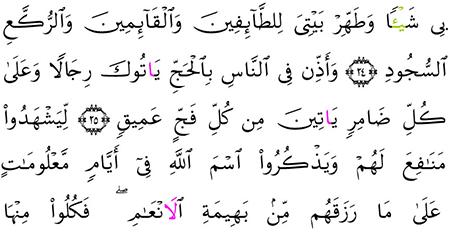 بِى شَيْـًٔا وَطَهِّرْ بَيْتِىَ لِلطَّآئِفِينَ وَالْقَآئِمِينَ وَالرُّكَّعِ
السُّجُودِ ٢٤ وَأَذِّن فِى النَّاسِ بِالْحَجِّ يَاتُوكَ رِجَالًا وَعَلَىٰ
كُلِّ ضَامِرٍ يَاتِينَ مِن كُلِّ فَجٍّ عَمِيقٍ ٢٥ لِّيَشْهَدُوا۟
مَنَـٰفِعَ لَهُمْ وَيَذْكُرُوا۟ اسْمَ اللَّهِ فِىٓ أَيَّامٍ مَّعْلُومَـٰتٍ
عَلَىٰ مَا رَزَقَهُم مِّنۢ بَهِيمَةِ الَانْعَـٰمِ ۖ فَكُلُوا۟ مِنْهَا